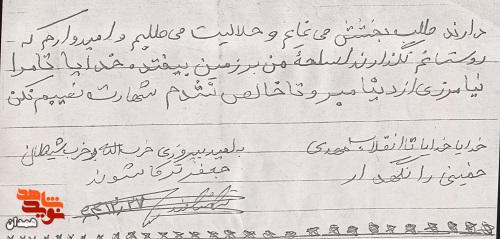 دارند طلب بخشش می نمایم و حلالیت می طلبم و امیدوارم که
دوستانم نگذارند اسلحهٔ من بر زمین بیفتد و خدایا تا مرا
نیامرزی از دنیا مبر و تا خالص نشدم شهادت نصیبم نکن
خدایا خدایا تا انقلاب مهدی
خمینی را نگهدار
به امید پیروزی حزب الله بر حزب شیطان
جعفر
شاهد
نوید
همدان